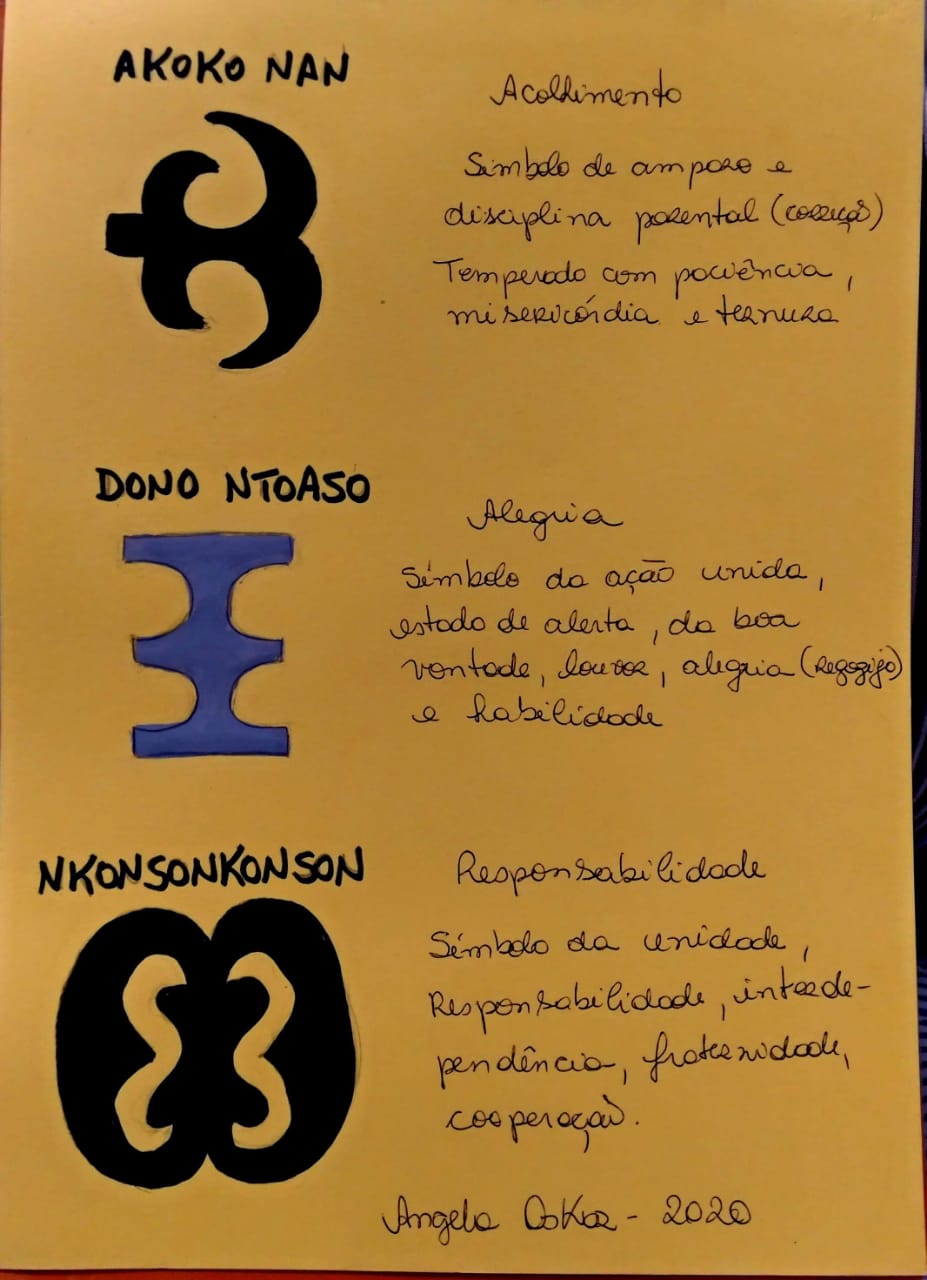 AKOKO NAN
Acolhimento
Símbolo de amparo e
disciplina parental (correção)
Temperado com paciência,
misericórdia e ternura
DONO NTOASO
Alegria
Símbolo da ação unida,
estado de alerta, da boa
vontade, louvor, alegria (regozijo)
e habilidade
NKONSONKONSON
Responsabilidade
Símbolo da unidade,
Responsabilidade, interde-
pendência, fraternidade,
cooperação.
Angela - 2020